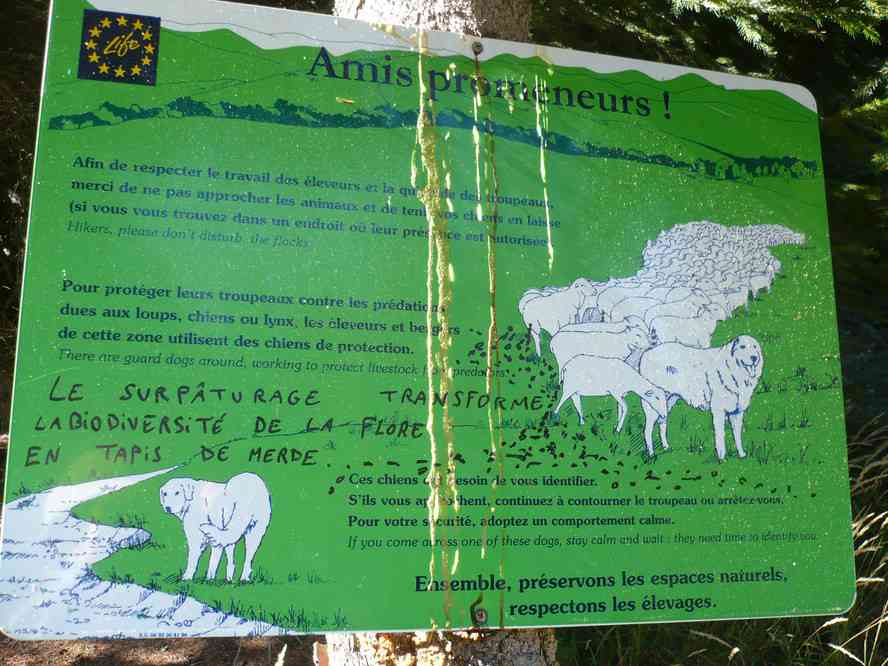 Life
Amis promeneurs !
Afin de respecter le travail des éleveurs et la quiétude des troupeaux,
merci de ne pas approcher les animaux et de tenir vos chiens en laisse
(si vous vous trouvez dans un endroit où leur présence est autorisée)
Hikers, please don't disturb the flocks
Pour protéger leurs troupeaux contre les prédations
dues aux loups, chiens ou lynx, les éleveurs et bergers
de cette zone utilisent des chiens de protection.
There are guard dogs around, working to protect livestock from predators
LE SURPÂTURAGE TRANSFORME
LA BIODIVERSITÉ DE LA FLORE
EN TAPIS DE MERDE.
Ces chiens ont besoin de vous identifier.
S'ils vous approchent, continuez à contourner le troupeau ou arrêtez-vous.
Pour votre sécurité, adoptez un comportement calme.
If you come across one of these dogs, stay calm and wait : they need time to identify you.
Ensemble, préservons les espaces naturels,
respectons les élevages.